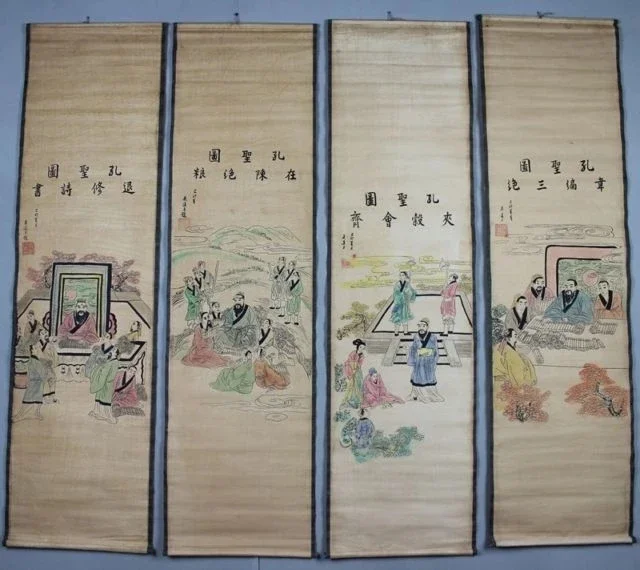 孔聖圖
韋編三絶
孔聖圖
夾穀會齊
孔聖圖
在陳絶粮
孔聖圖
退修詩書